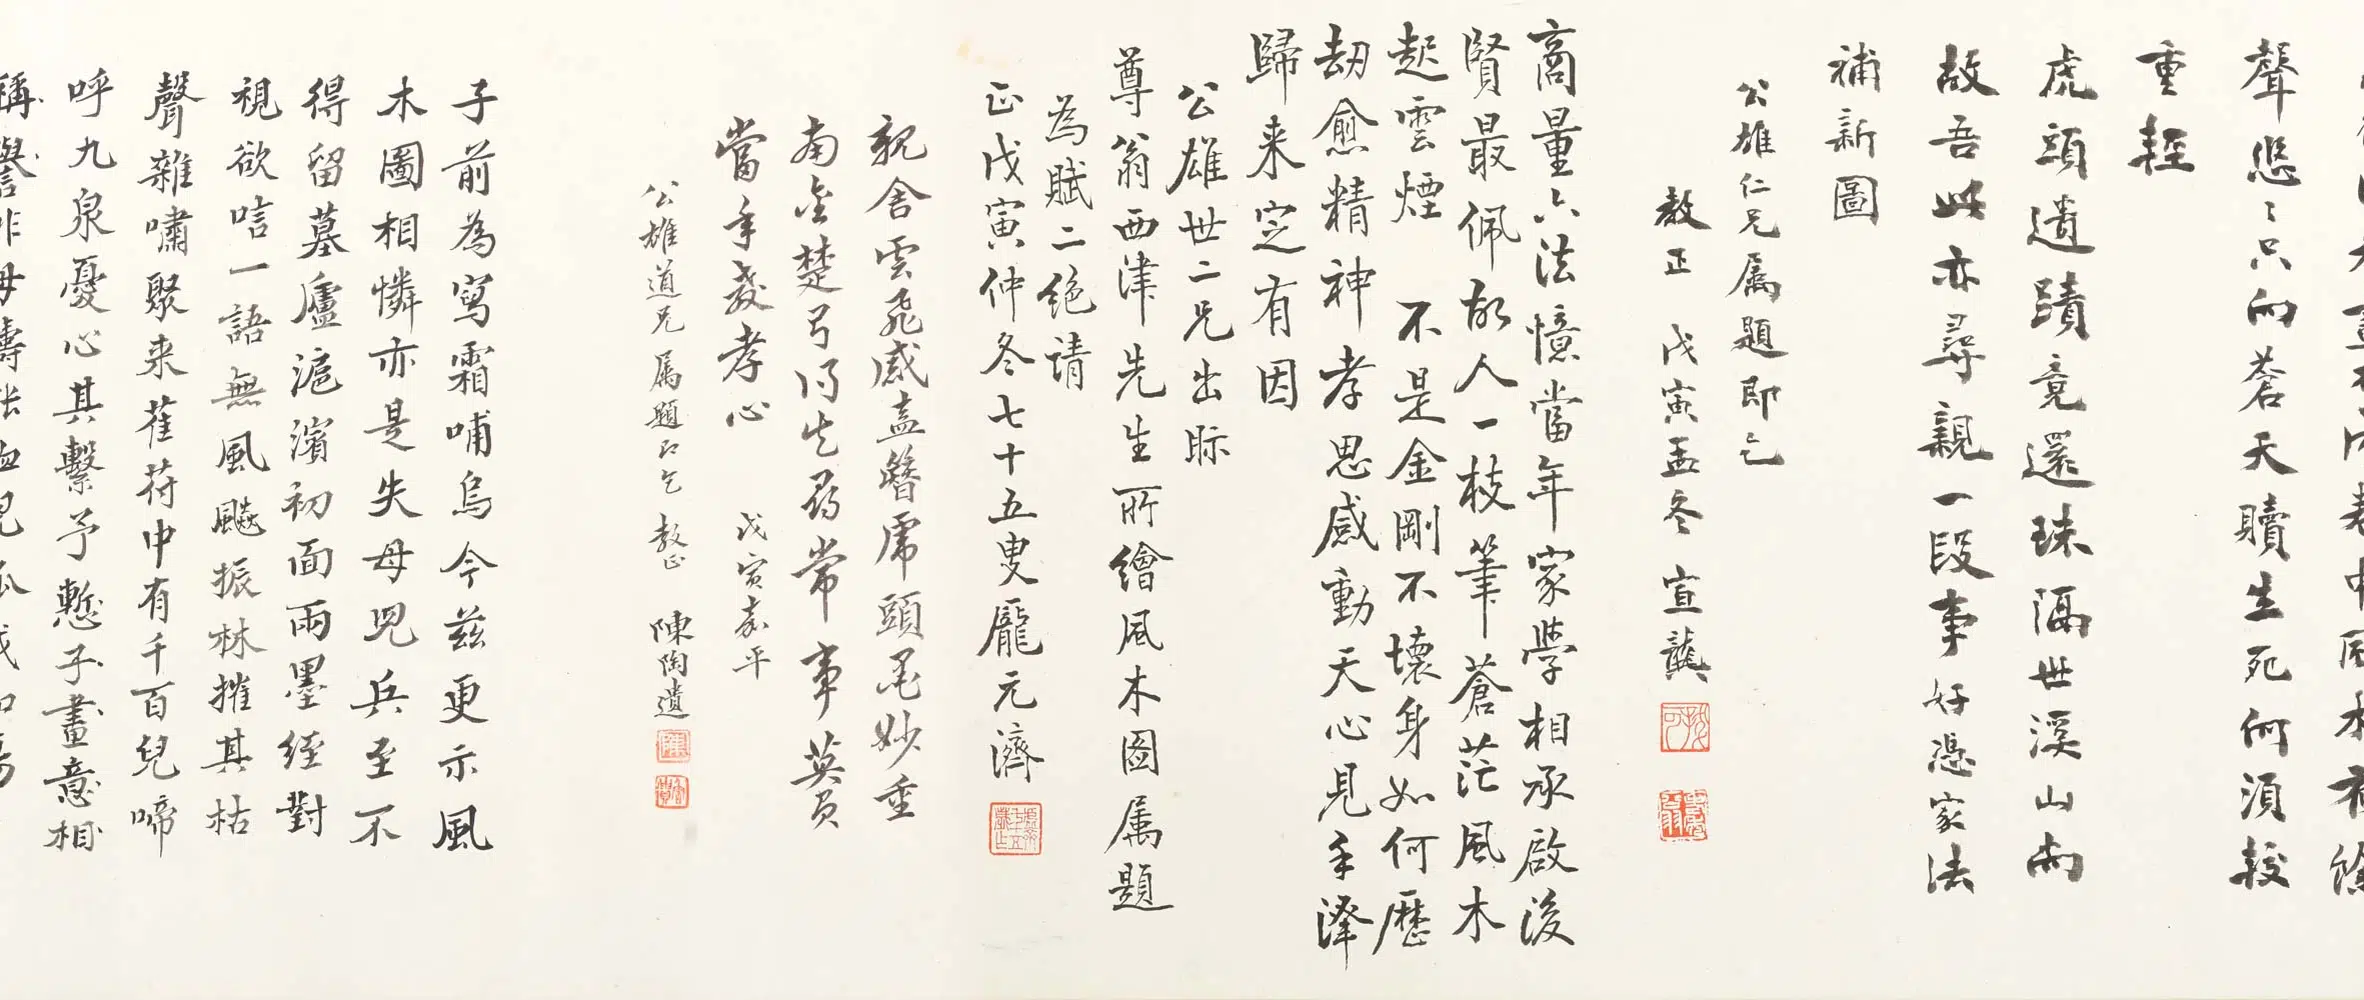 聲悲〻只向蒼天贖生死何須較
重輕
虎頭遺蹟竟還珠隔世溪山兩
故吾此亦尋親一段事好憑家法
補新圖
公雄仁兄属題即乞
教正 戊寅孟冬 宣龔
商量六法憶當年家學相承啟後
賢最佩故人一枝筆蒼茫風木
起雲煙 不是金剛不壞身如何歷
劫愈精神孝思感動天心見手澤
歸来定有因
公雄世二兄出眎
尊翁西津先生所繪風木圖属題
為賦二絶請
正戊寅仲冬七十五叟龐元濟
親舍雲飛感盍簪虎頭毫妙重
南金楚弓得失尋常事莫負
當年教孝心
公雄道兄属題即乞 教正 戊寅嘉平 陳陶遺
子前為寫霜哺烏今茲更示風
木圖相憐亦是失母兒兵至不
得留墓廬滬濱初面兩墨絰對
視欲唁一語無風飈振林摧其枯
聲雜嘯聚来萑苻中有千百兒啼
呼九泉憂心其繫予慙子畫意相